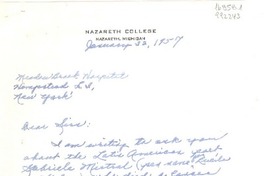 NAZARETH COLLEGE
NAZARETH, MICHIGAN
January 22, 1957
Meadow Brook Hospital
Hempstead L.I.,
New York
Dear Sirs:
I am writing to ask you
about the Latin American poet
Gabriela Mistral